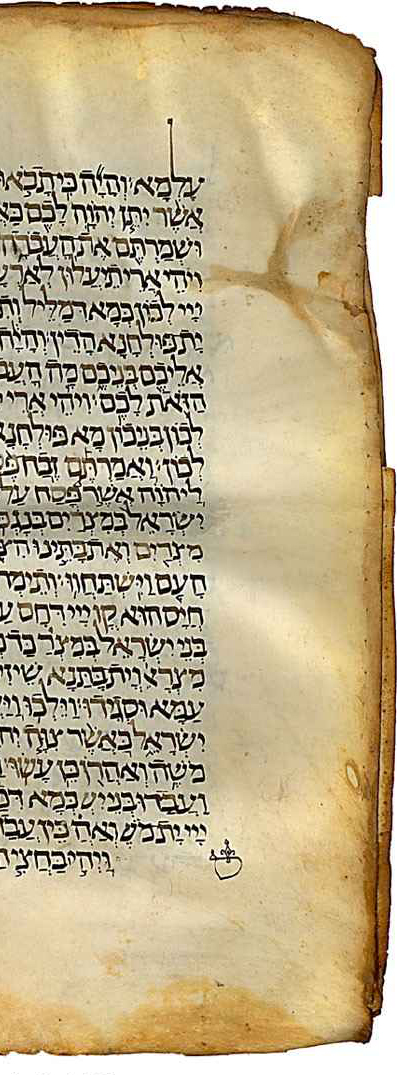 עלמא׳ והיה כי תבאו
אשר יתן יהוה לכם כא
ושמרתם את העבדה
ויהי ארי תיעלון לארע
ייי לכון כמא דמליל ות
ית פולחנא הדין׳ והיה
אליכם בניכם מה העב
הזאת לכם׳ ויהי ארי י
לכון בניכון מא פולחנא
לכון׳ ואמרתם זבח פ
ליהוה אשר פסח על
ישראל במצרים בנגפ
מצרים ואת בתינו הצ
העם וישתחוו׳ ותימר
חייס הוא קדם ייי דחס ע
בני ישראל במצר כד מ
מצראי וית בתנא שיזי
עמא וסגידו׳ וילכו ויע
ישראל כאשר צוה יה
משה ואהרן כן עשו
ועבדו בני יש כמא דפ
ייי ית מש ואה כין עבד
ויהי בחצי ה